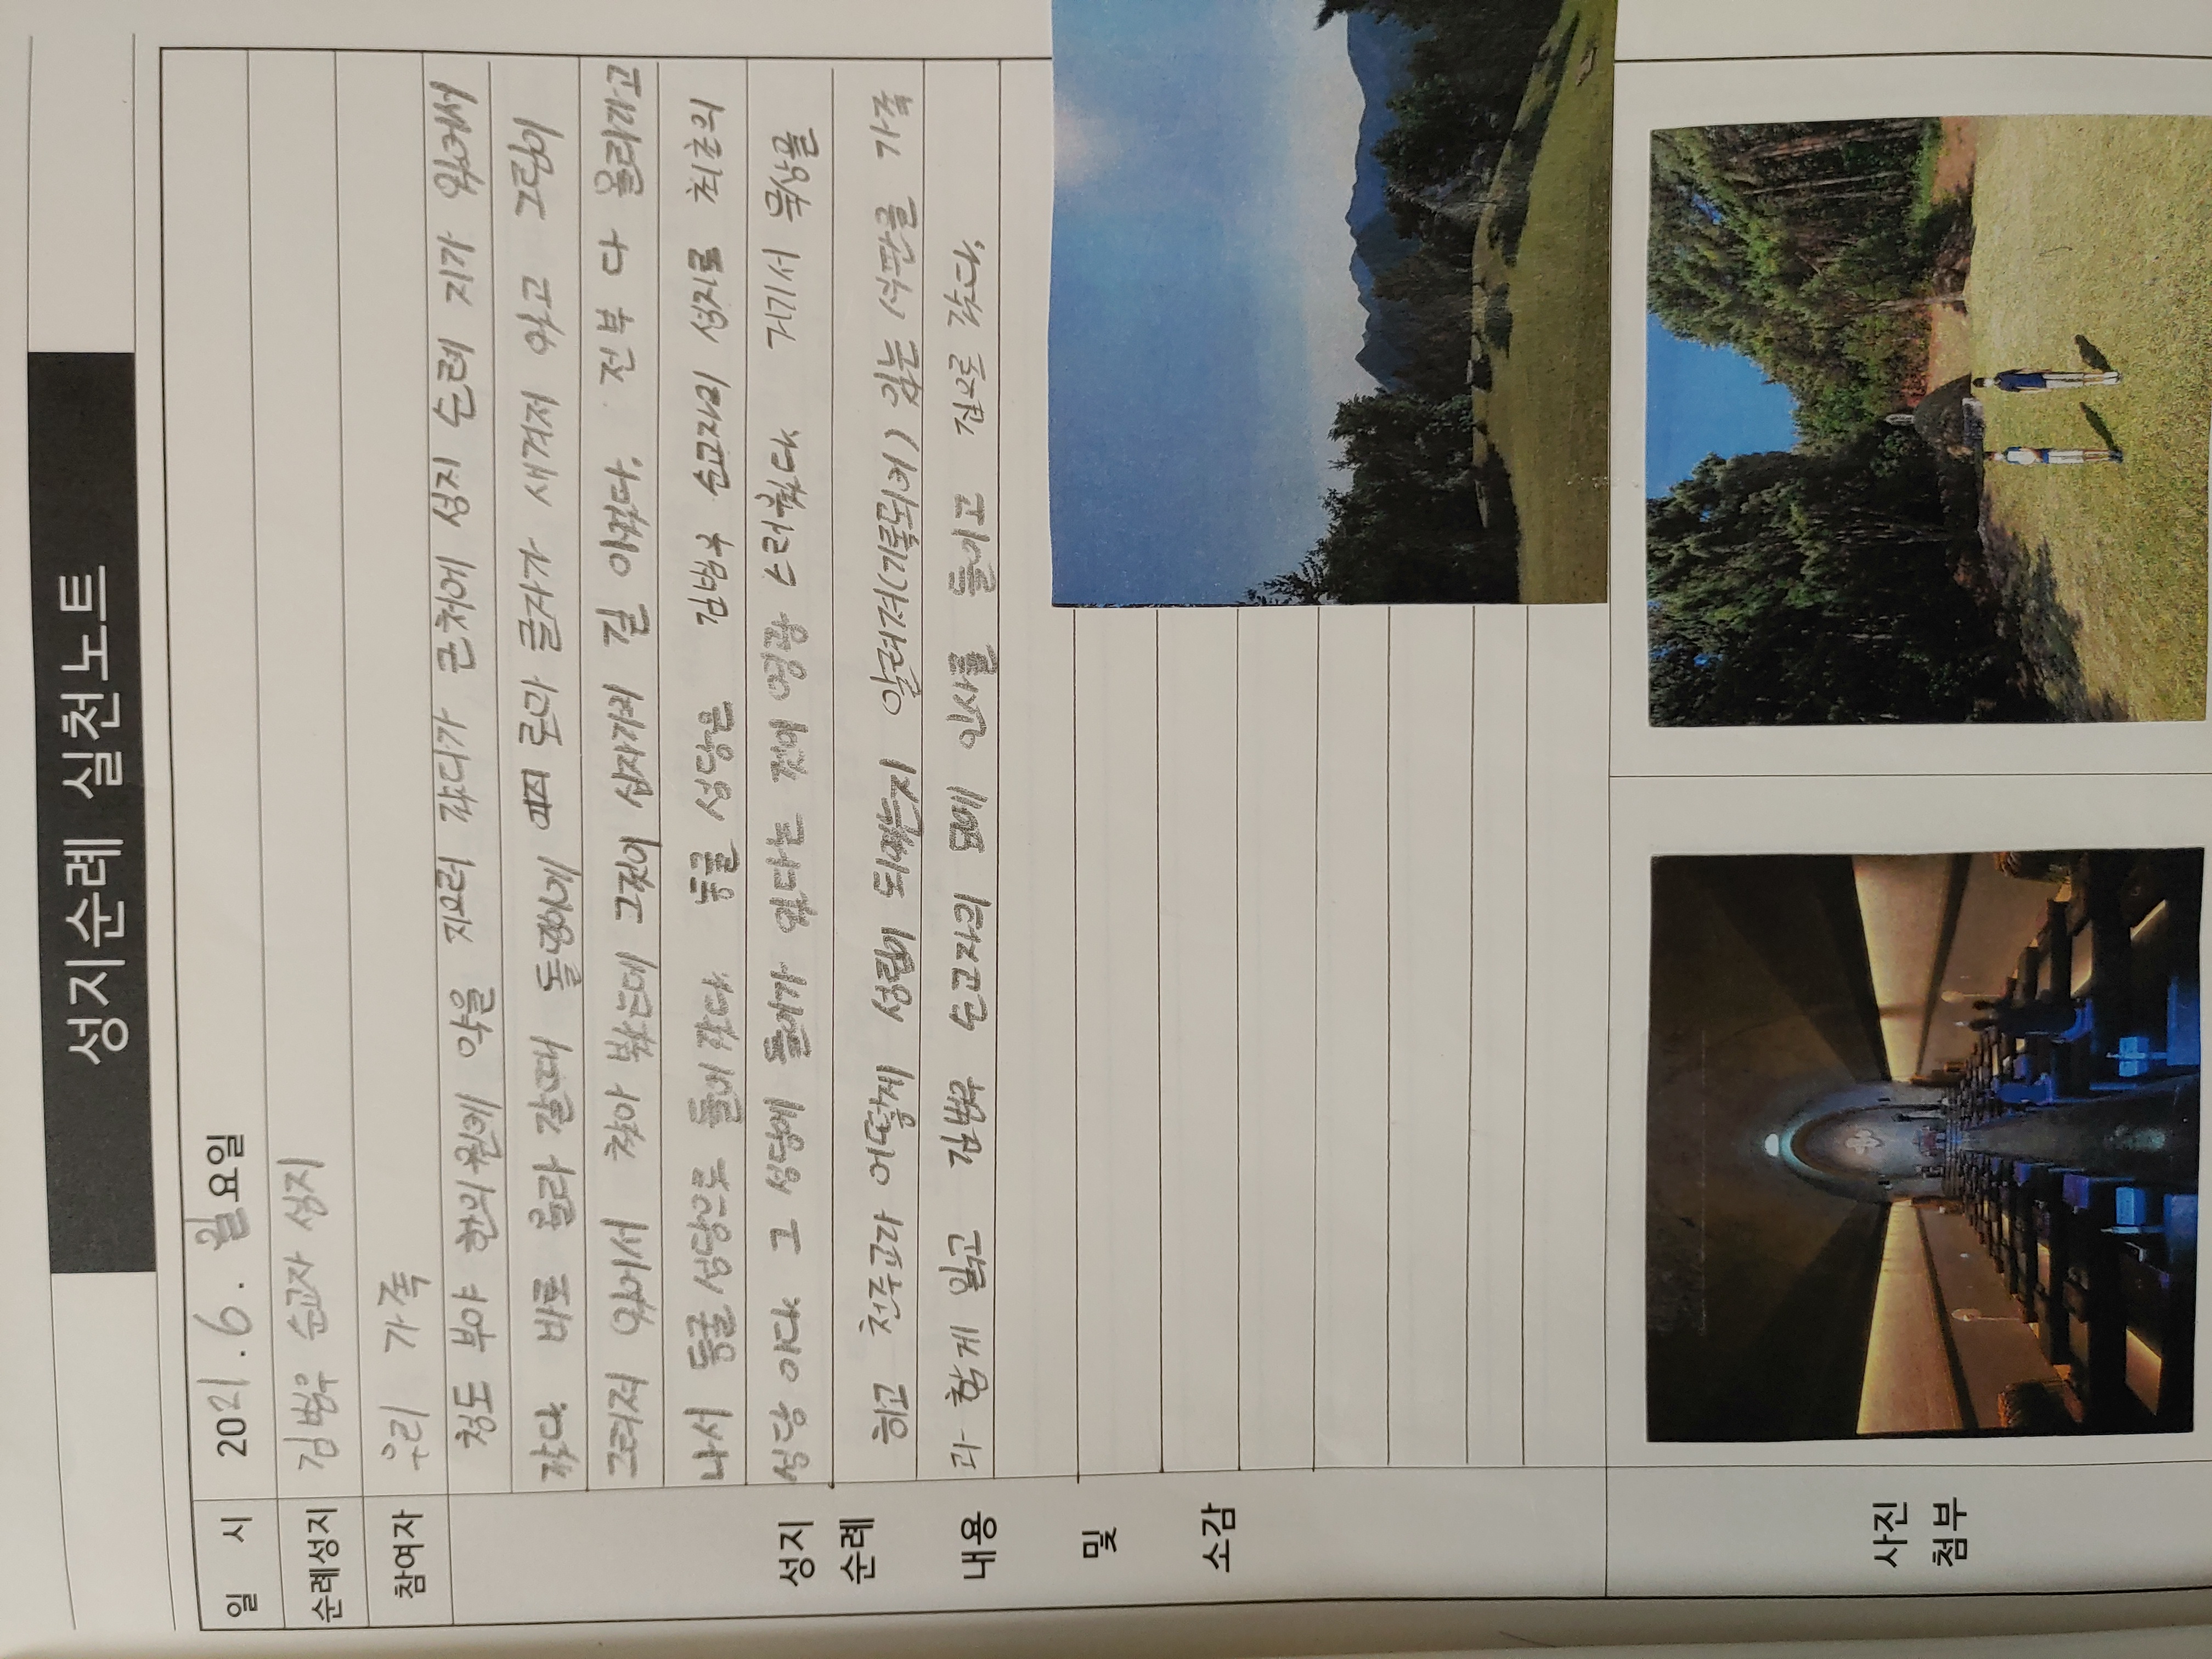 성지순례 실천노트
일 시 2021. 6. 월요일
순례성지 김범우 순교자 성지
참여자 우리 가족
성지 순례 내용 및 소감
청도 부야 한의원에 약을 지으러 갔다가 근처에 성지 순례 지가 있어서
갔다. 바로 올라 갈때 돌멩이에 로마 글자가 새겨져 있고 그림이
그려져 있어서 찾아 봤는데 그것이 십자가의 길 이였다. 전부 다 올라가고
나서 동굴 성당으로 들어 갔다. 동굴 성당은 김범우 순교자의 성지로 최초의
성당 이다. 그 성당에 들어가 있다는 것이 영광 스러웠다. 거기서 묵상을
하고 천주교가 어떻게 성립이 되었는지 알려져(기록되어) 있는 푯판을 가족
과 함께 읽고 김범우 순교자의 묘에 인사를 들이고 집으로 갔다.
사진 첨부